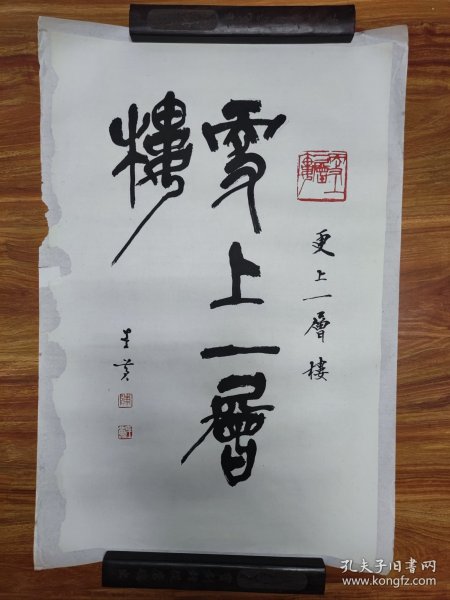 更上一層樓
更上一層
樓
孔夫子旧书网
www.kongfz.com